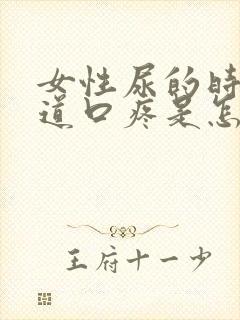 女性尿的时
道口疼是怎
王府十一少